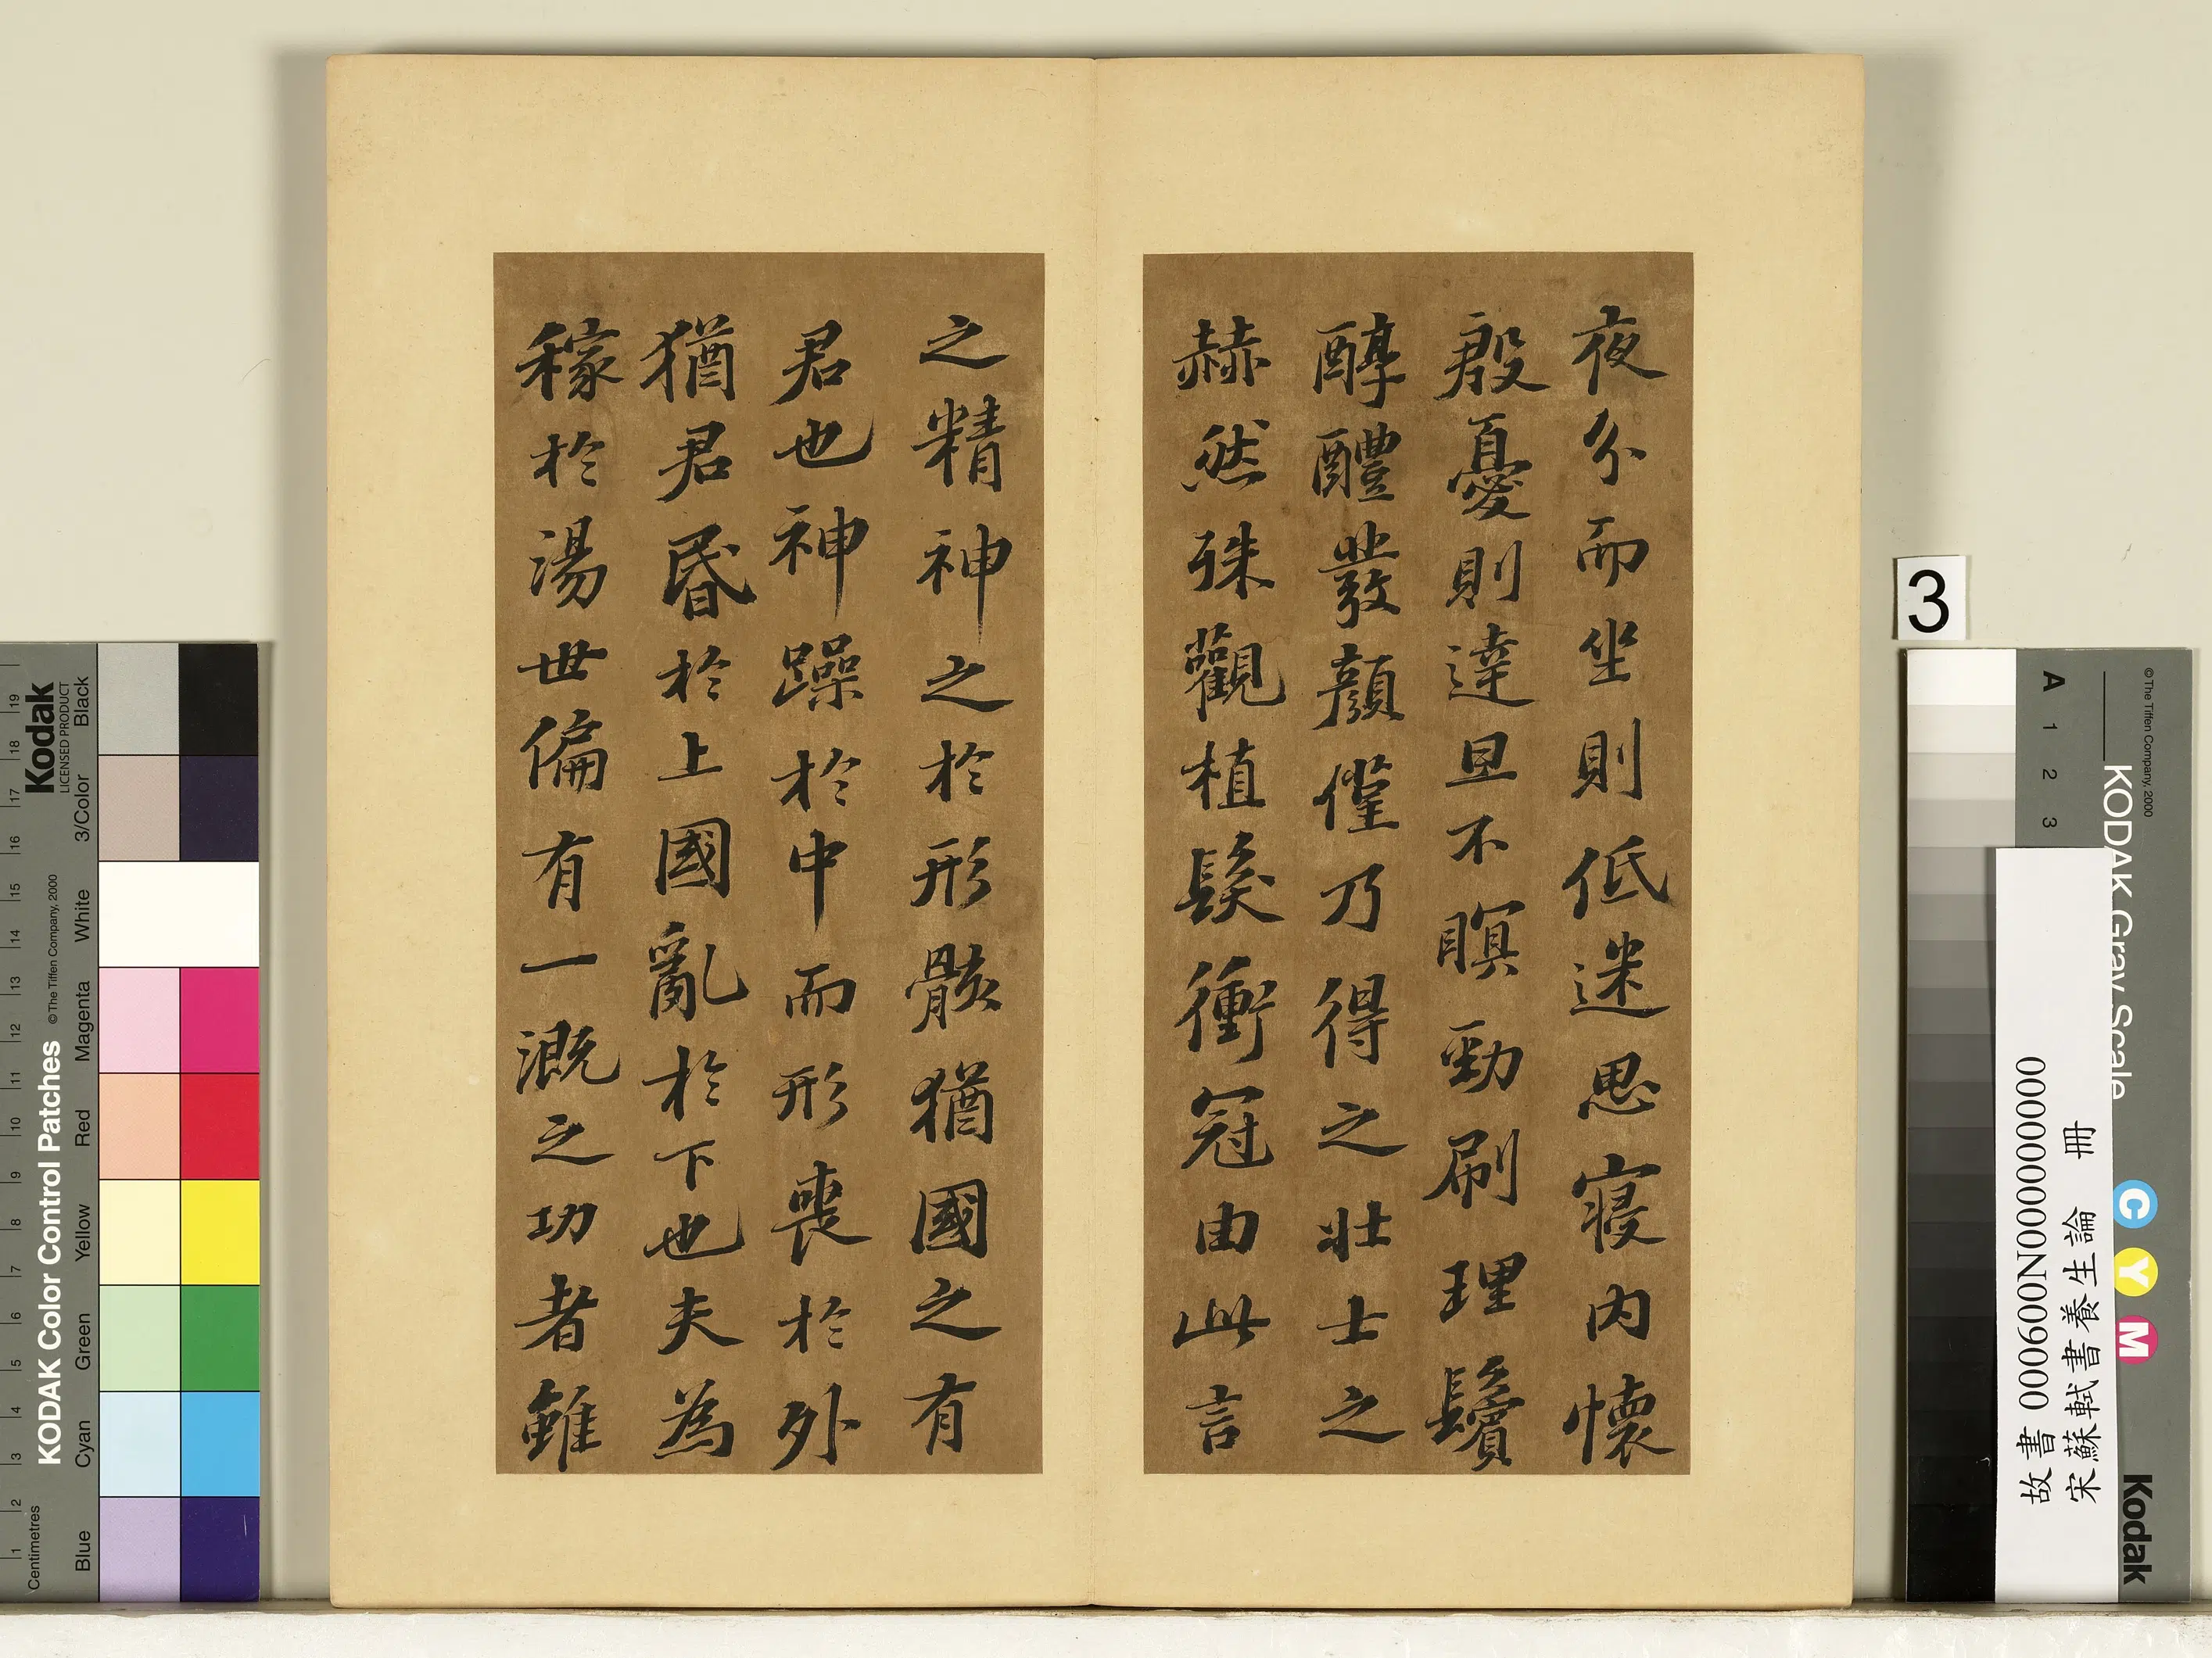 夜分而坐則低迷思寑内懷
殷憂則達旦不瞑勁刷理鬢
醇醴發顔僅乃得之壯士之
赫然殊觀植髮衝冠由此言
之精神之於形骸猶國之有
君也神躁於中而形喪於外
猶君昏於上國亂於下也夫為
稼於湯世偏有一溉之功者雖
3
故書 000600N000000000
宋蘇軾書養生論 冊
KODAK Color Control Patches
©The Tiffen Company, 2000
Kodak
LICENSED PRODUCT
Centimetres
1 2 3 4 5 6 7 8 9 10 11 12 13 14 15 16 17 18 19
Blue
Cyan
Green
Yellow
Red
Magenta
White
3/Color
Black
KODAK Gray Scale
©The Tiffen Company, 2000
A 1 2 3
C Y M
Kodak